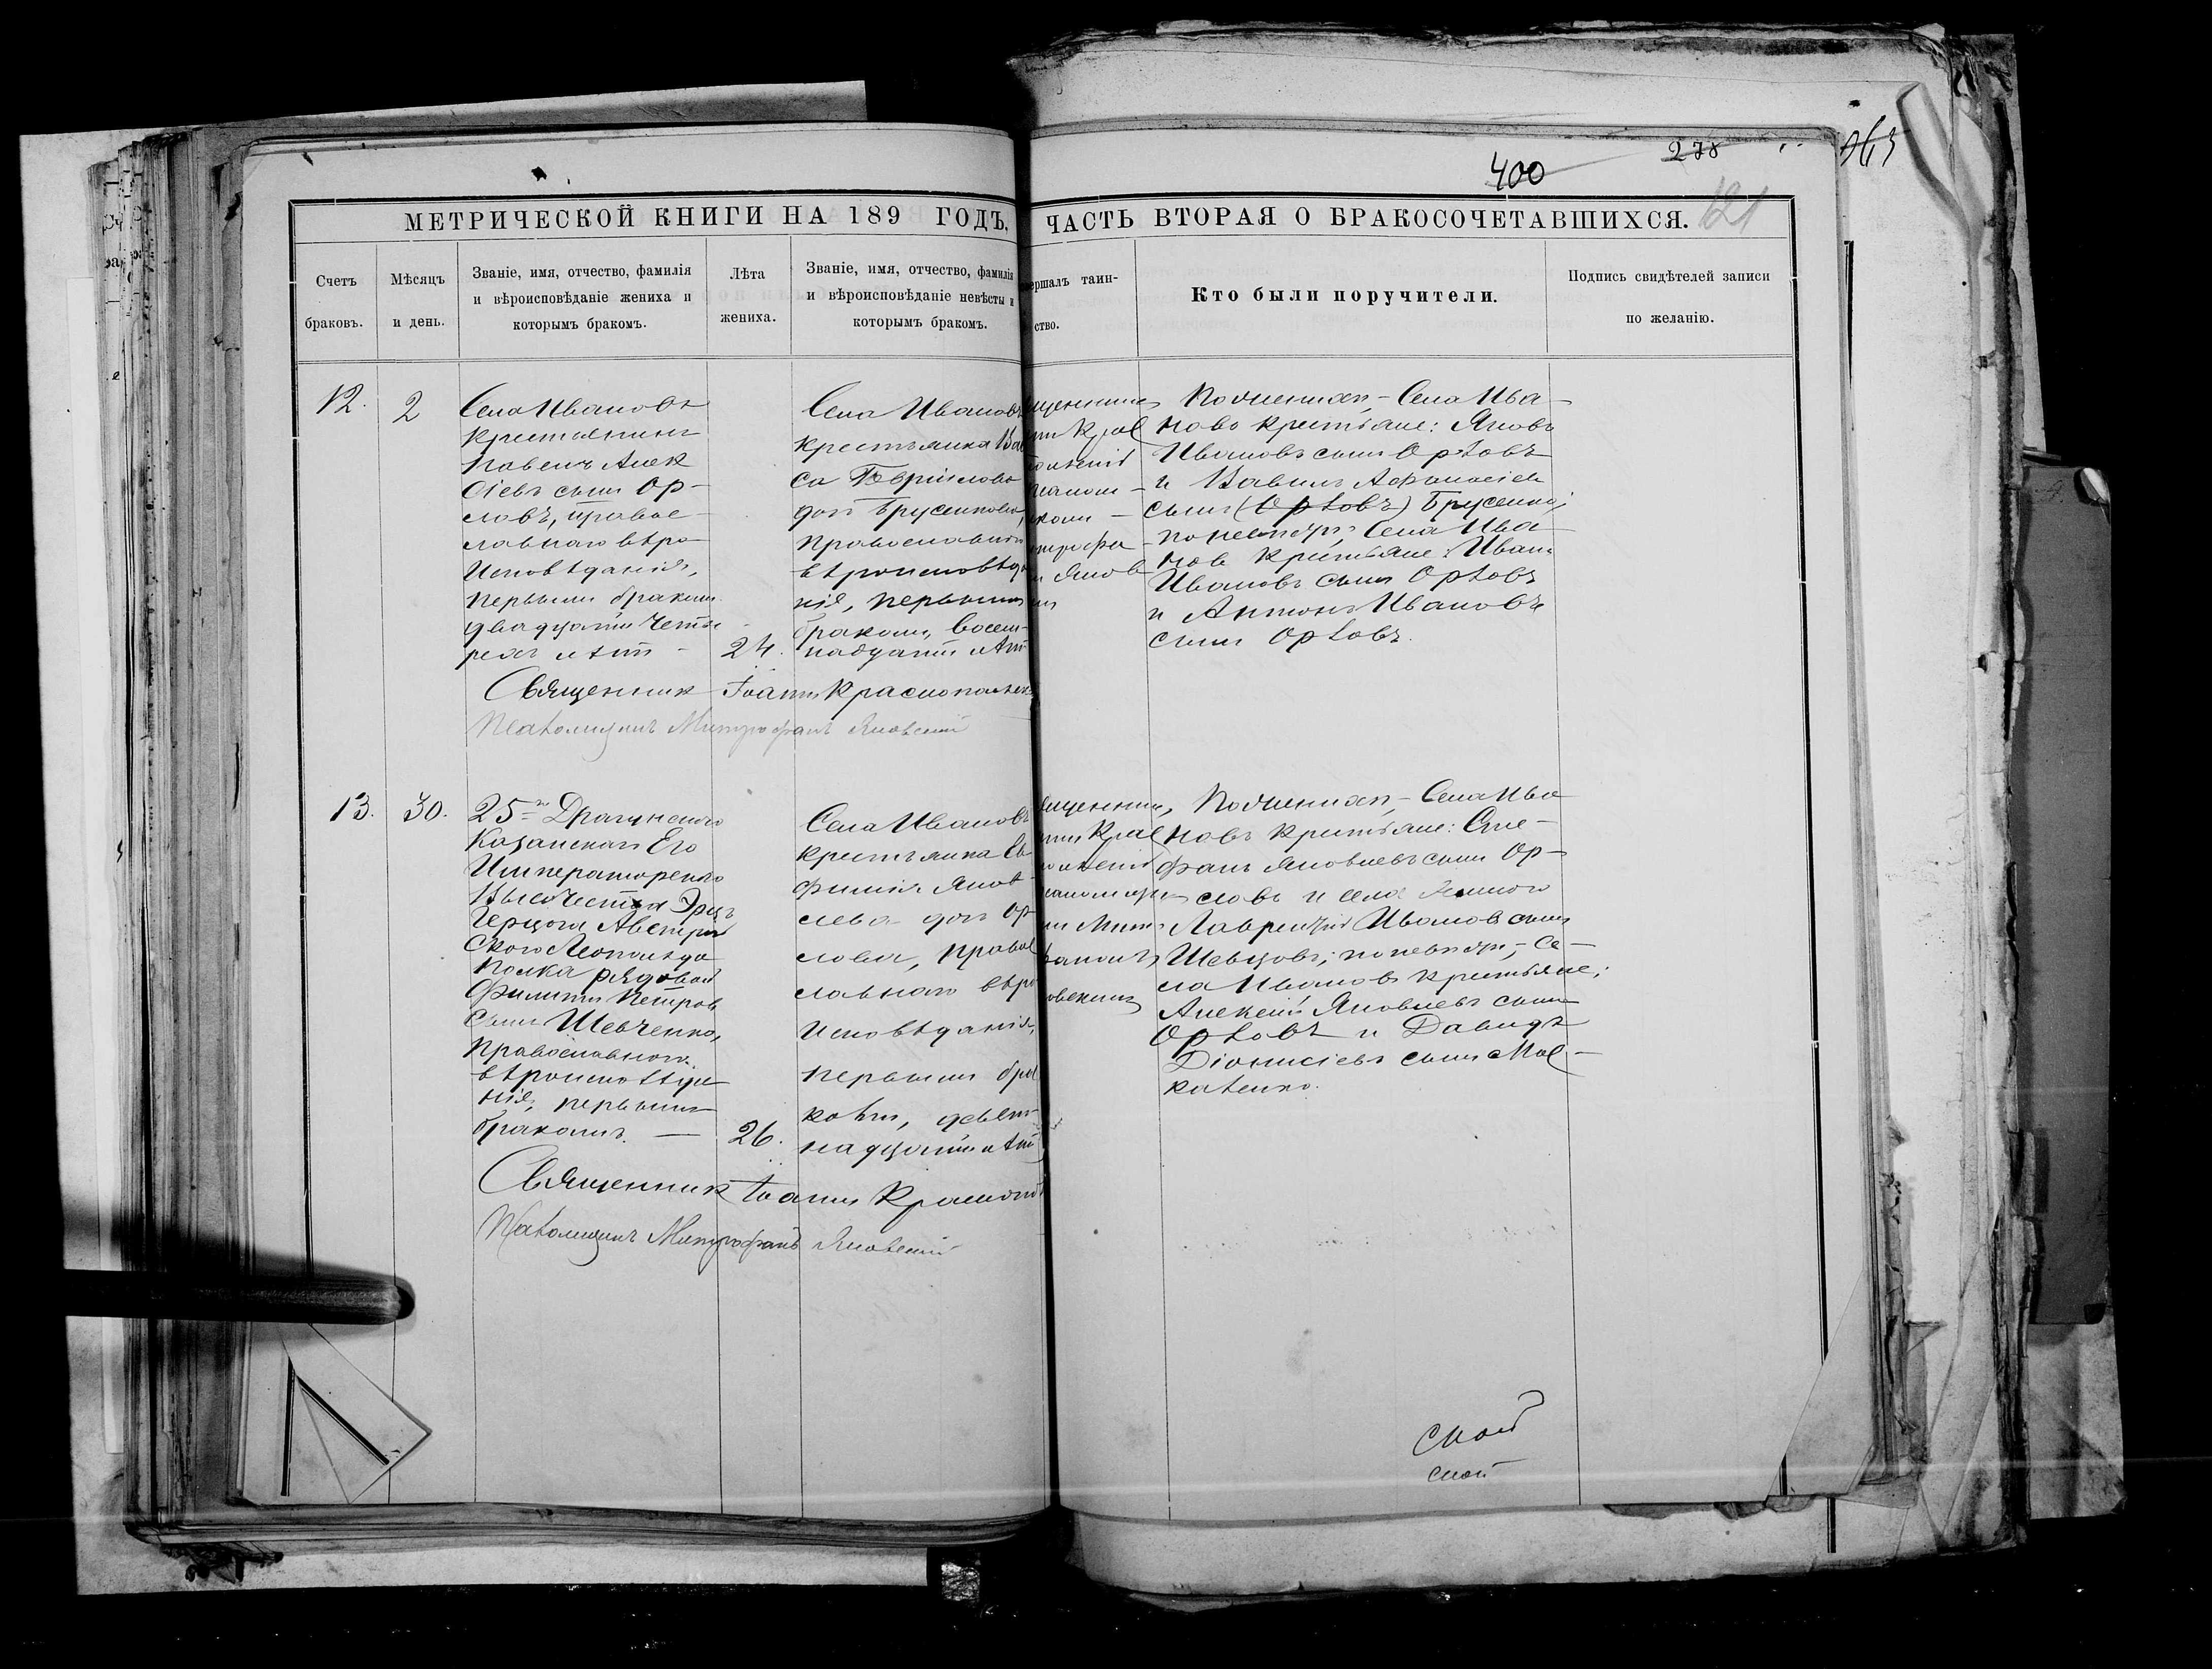 400
278
121
МЕТРИЧЕСКОЙ КНИГИ НА 189 ГОДЪ,
ЧАСТЬ ВТОРАЯ О БРАКОСОЧЕТАВШИХСЯ.
Счетъ
браковъ.
Мѣсяцъ
и день.
Званіе, имя, отчество, фамилія
и вѣроисповѣданіе жениха и
которымъ бракомъ.
Лѣта
жениха.
Званіе, имя, отчество, фамилія
и вѣроисповѣданіе невѣсты и
которымъ бракомъ.
вершалъ таин-
ство.
Кто были поручители.
Подпись свидѣтелей записи
по желанію.
12.
2
Села Ивановъ
крестьянинъ
Павелъ Алек
сіевъ сынъ Ор-
ловъ, правос
лавнаго вѣро
исповѣданія,
первымъ бракомъ
двадцати четы
рехъ лѣтъ -
24.
Села Ивановъ
крестьянка Ва
са
доч Брусенкова,
православнаго
вѣроисповѣда
нія, первымъ
бракомъ, восем-
надцати лѣтъ
щенникъ
Крас
Яков
По женихѣ, - Села Ива-
новъ крестьяне: Яковъ
Ивановъ сынъ Орловъ
и Вавилъ Афанасіев
сынъ (Орловъ) Брусенко;
по невѣстѣ, Села Ива
новъ крестьяне: Иванъ
Ивановъ сынъ Орловъ
и Антонъ Ивановъ
сынъ Орловъ.
Священникъ Іоаннъ Краснопольск
Псаломщикъ Митрофанъ Яновскій
13.
30.
25го Драгунскаго
Казанскаго Его
Императорскаго
Высочества Эрцъ
Герцога Австрій
скаго Леопольда
полка рядовой
Филиппъ Петровъ
сынъ Шевченко,
православнаго
вѣроисповѣда
нія, первымъ
бракомъ. —
26.
Села Ивановъ
крестьянка Ев
фимія Яков
лева доч Ор
лова, правос
лавнаго вѣро
исповѣданія,
первымъ бра
комъ, девят-
надцати лѣтъ
щенникъ
Крас
Мит
фаномъ
новскимъ
По женихѣ, - Села Ива
новъ крестьяне: Сте-
фанъ Яковлевъ сынъ Ор-
ловъ и села
Лаврентій Ивановъ сынъ
Шевцовъ; по невѣстѣ, - Се-
ла Ивановъ крестьяне:
Алексій Яковлевъ сынъ
Орловъ и Давидъ
Діонисіевъ сынъ Мос-
каленко.
Священникъ Іоаннъ Краснопол
Псаломщикъ Митрофанъ Яновскій